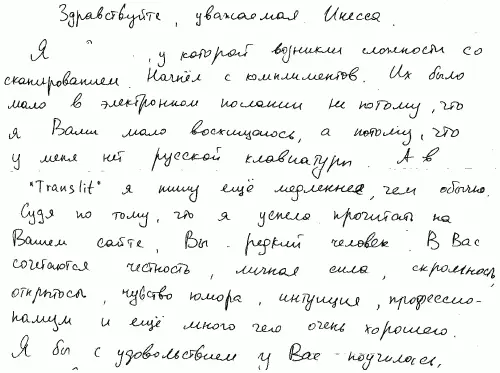 Здравствуйте, уважаемая Инесса.
Я " , у которой возникли сложности со
сканированием. Начнём с комплиментов. Их было
мало в электронном послании не потому, что
я Вами мало восхищаюсь, а потому, что
у меня нет русской клавиатуры. А в
"Translit" я пишу ещё медленнее, чем обычно.
Судя по тому, что я успела прочитать на
Вашем сайте, Вы - редкий человек. В Вас
сочетаются честность, личная сила, скромность,
открытость, чувство юмора, интуиция, профессио-
нализм и ещё много чего очень хорошего.
Я бы с удовольствием у Вас поучилась,